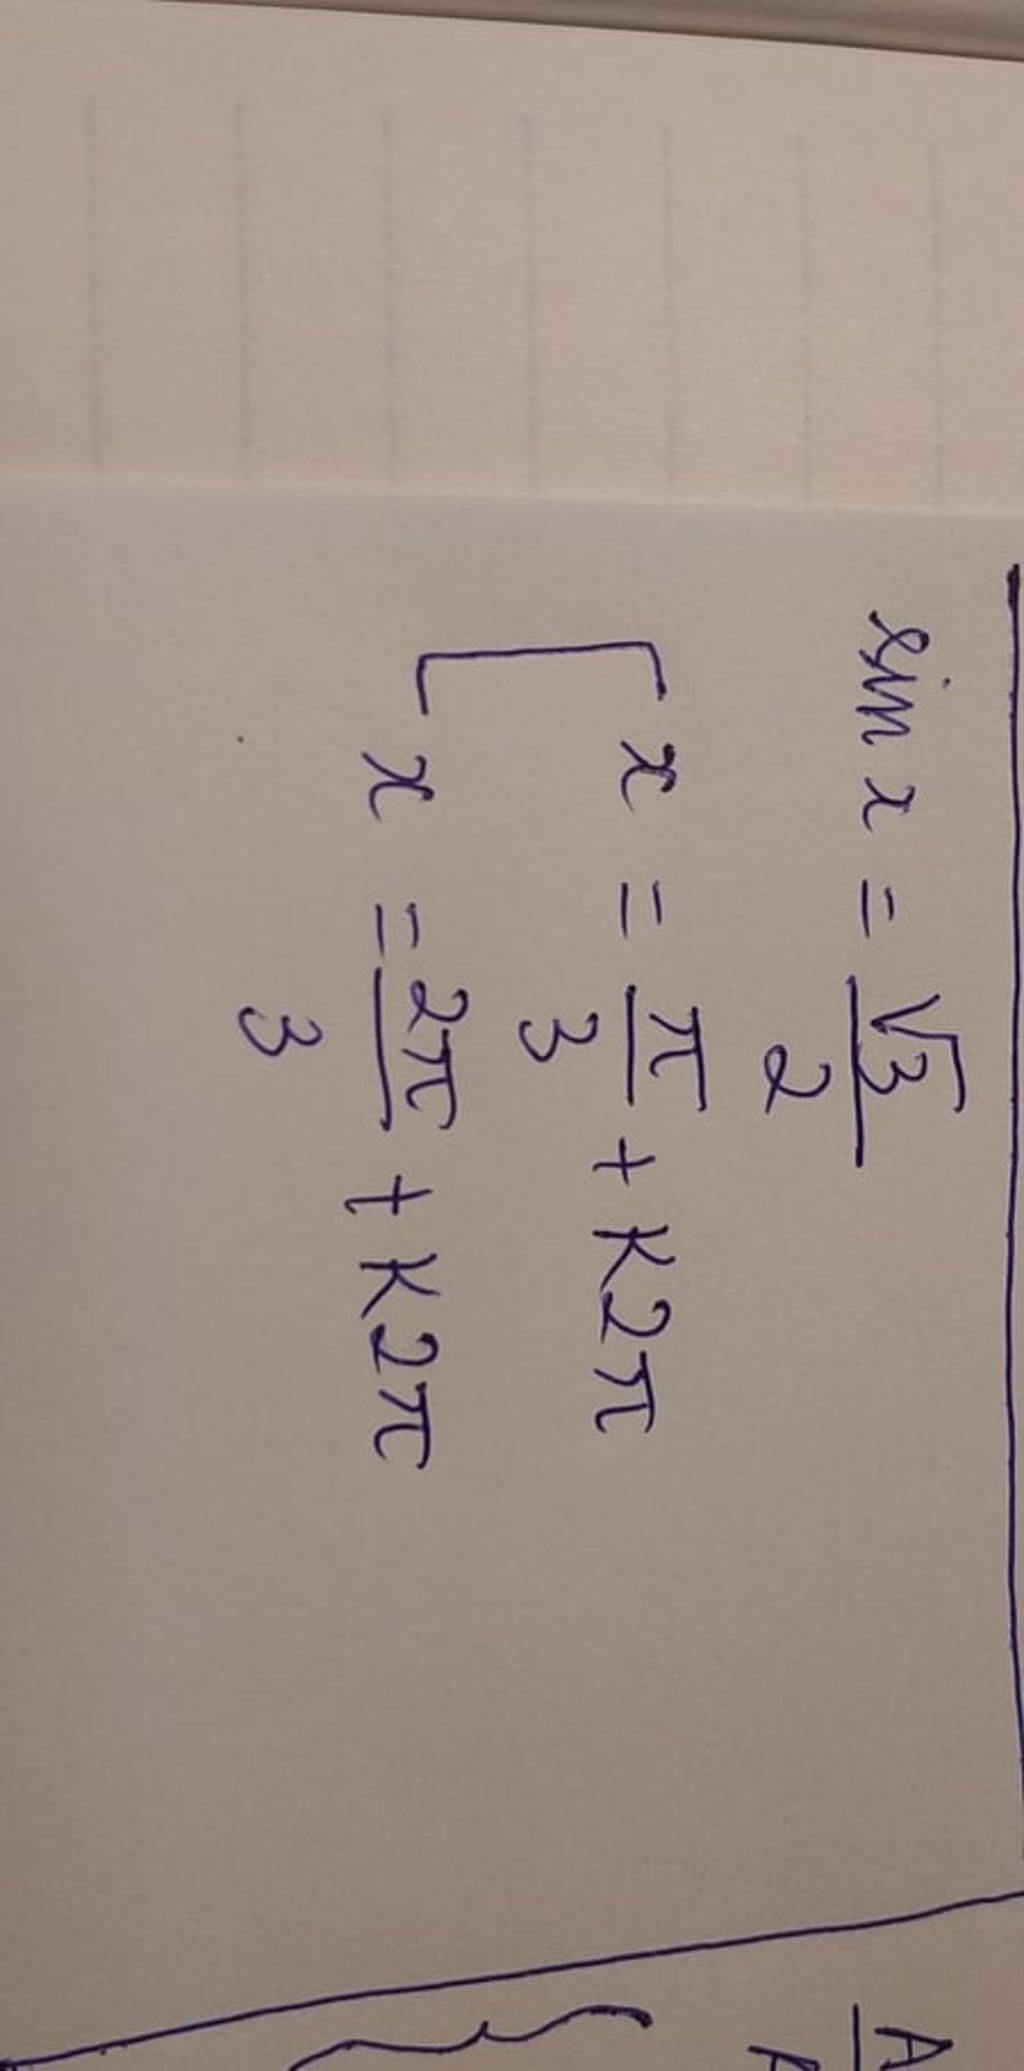 sin x = √3/2
x = π/3 + K2π
x = 2π/3 + K2π
A